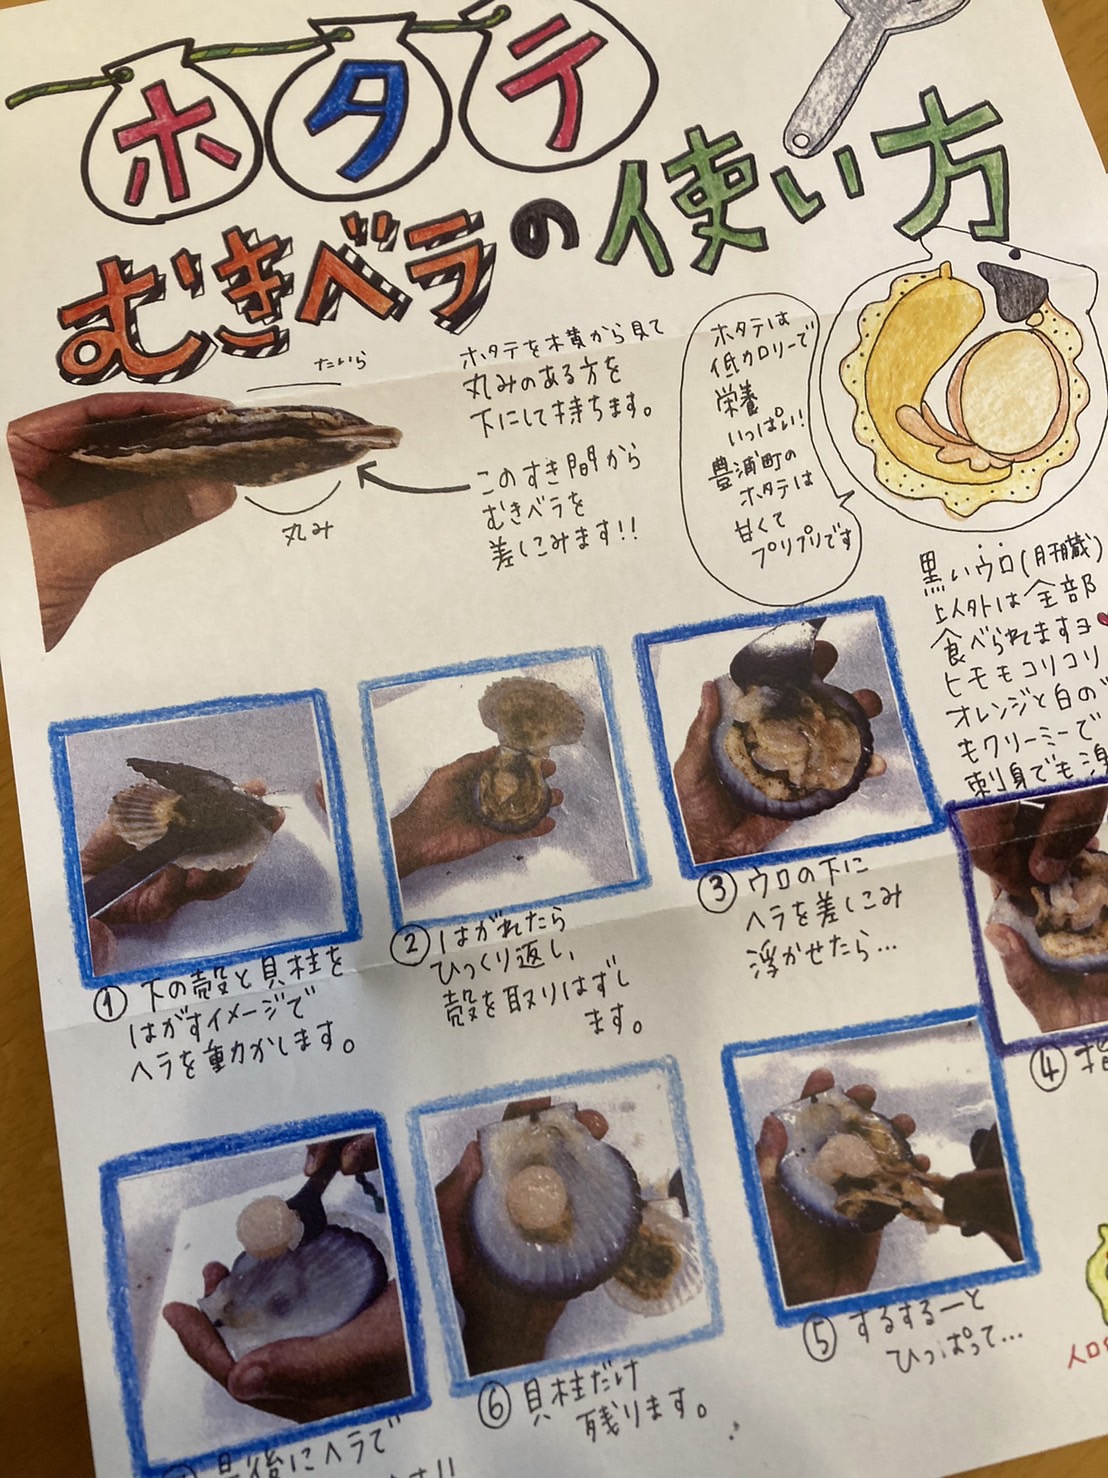 ホタテ
むきベラの使い方
たいら
丸み
ホタテを横から見て
丸みのある方を
下にして持ちます。
このすき間から
むきベラを
差しこみます!!
ホタテは
低カロリーで
栄養
いっぱい!
豊浦町の
ホタテは
甘くて
プリプリです
黒いウロ(肝臓)
以外は全部
食べられますヨ
ヒモもコリコリ
オレンジと白の
もクリーミーで
刺身でも
① 下の殻と貝柱を
はがすイメージで
ヘラを動かします。
② はがれたら
ひっくり返し
殻を取りはずし
ます。
③ ウロの下に
ヘラを差しこみ
浮かせたら…
④ 指
⑤ するするーと
ひっぱって…
⑥ 貝柱だけ
残ります。
最後にヘラで